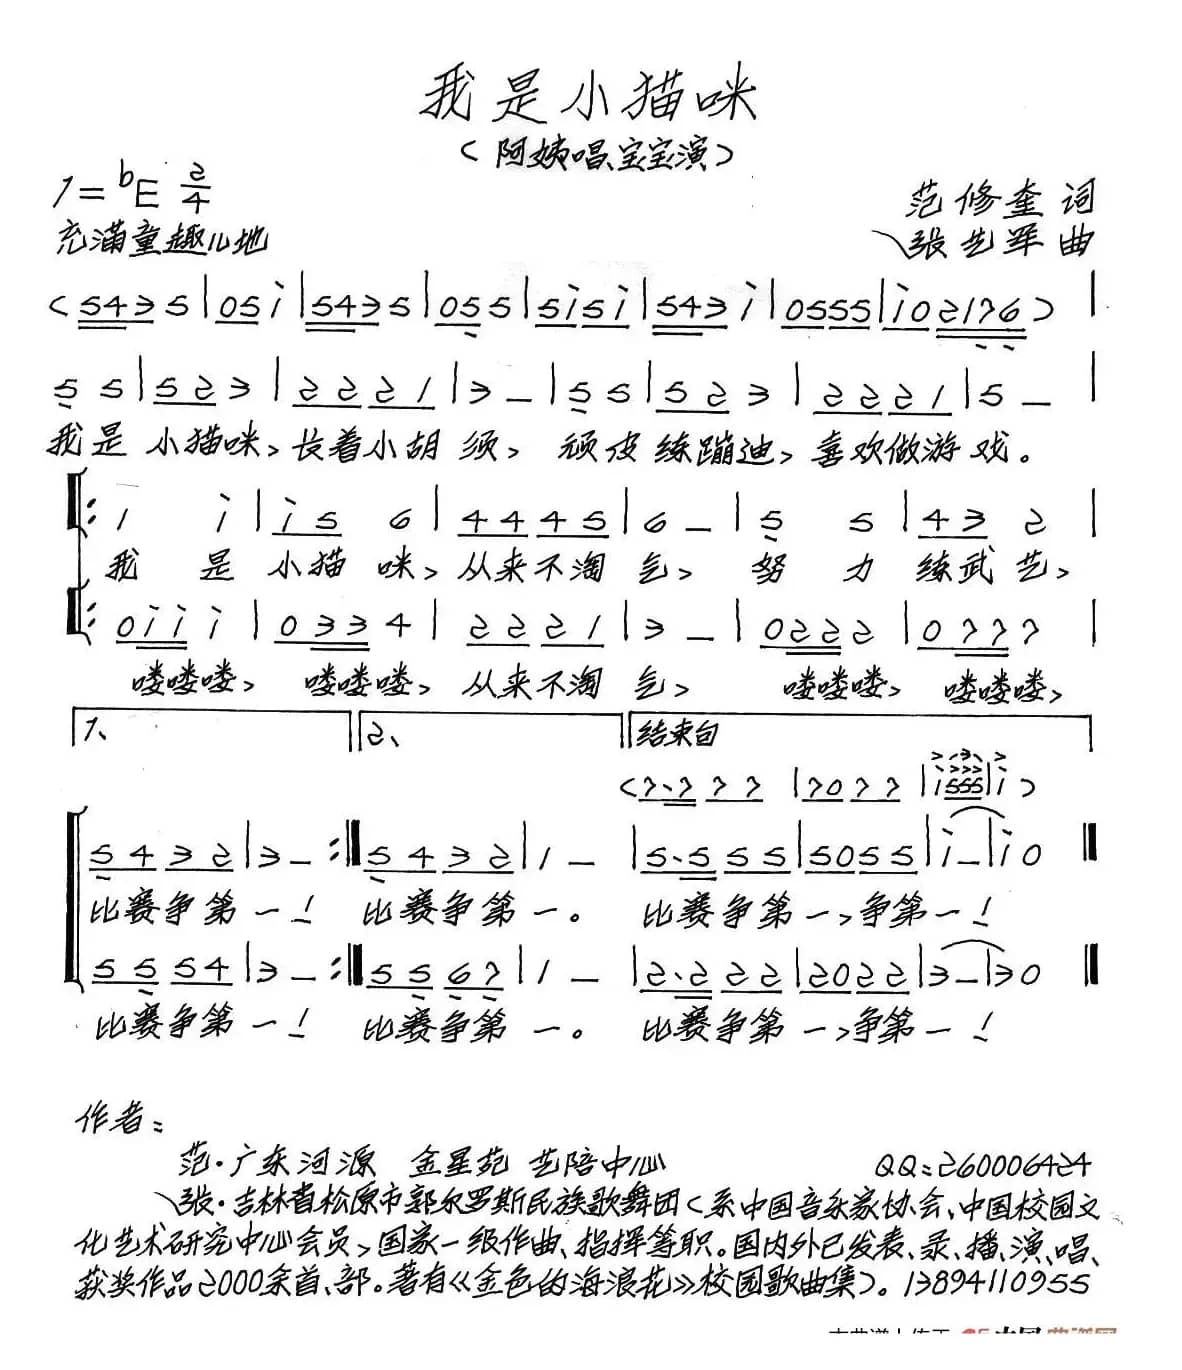 我是小猫咪
（阿姨唱、宝宝演）
1=bE 2/4
范修奎 词
充满童趣儿地
张艺军 曲
(5435|05i|5435|055|5i5i|543i|0555|i02176)|
55|523|2221|3–|55|523|2221|5–|
我是小猫咪、长着小胡须、顽皮练蹦迪、喜欢做游戏。
‖:1i|i56|4445|6–|55|432|
我是小猫咪、从来不淘气、努力练武艺、
‖:0iii|0334|2221|3–|0222|0777|
喽喽喽、喽喽喽、从来不淘气、喽喽喽、喽喽喽、
1、 2、 结束句
(7·777|7077|i555|i)
5432|3–:‖5432|1–|5·555|5055|i–|i0‖
比赛争第一！ 比赛争第一。 比赛争第一、争第一！
5554|3–:‖5567|1–|2·222|2022|3–|30‖
比赛争第一！ 比赛争第一。 比赛争第一、争第一！
作者：
范·广东河源 金星苑 艺陪中心 QQ：260006424
张·吉林省松原市郭尔罗斯民族歌舞团（系中国音乐家协会、中国校园文
化艺术研究中心会员、国家一级作曲、指挥等职。国内外已发表、录、播、演、唱、
获奖作品2000余首、部。著有《金色的海浪花》校园歌曲集）。13894110955